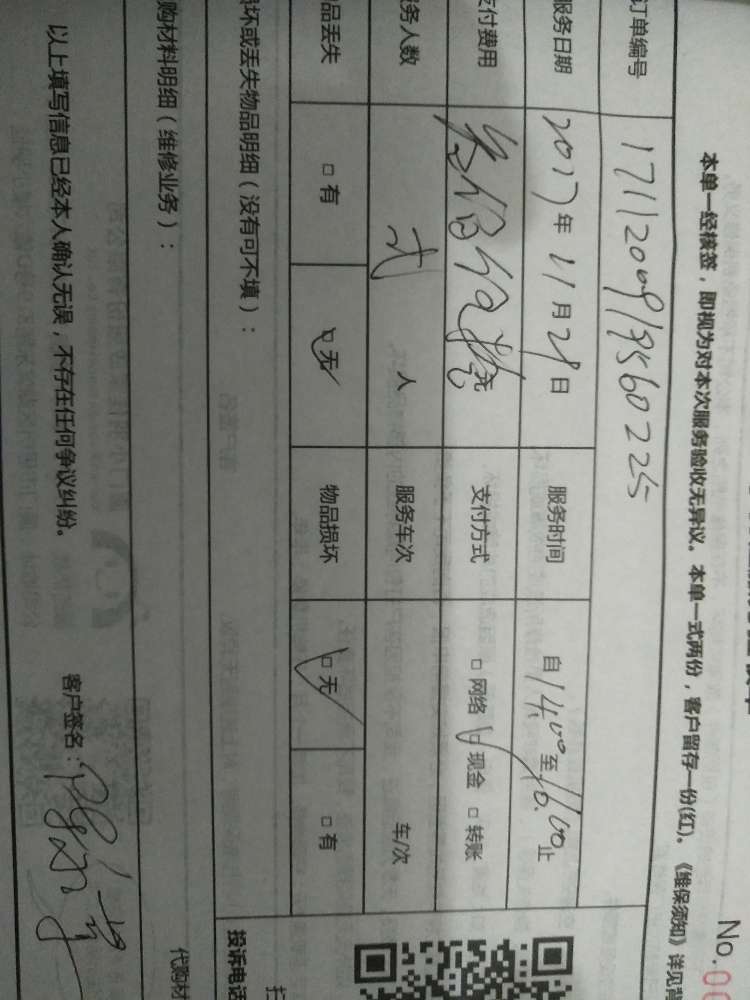 No.
本单一经核签，即视为对本次服务验收无异议。本单一式两份，客户留存一份(红)。《维保须知》详见背
订单编号
服务日期 2017年11月28日 服务时间 自14:00至16:00止
支付费用 元 支付方式 □网络 □现金 □转账
务人数 弍 人 服务车次 车/次
品丢失 □有 □无 物品损坏 □无 □有
损坏或丢失物品明细（没有可不填）：
投诉电话
购材料明细（维修业务）：
代购材
以上填写信息已经本人确认无误，不存在任何争议纠纷。 客户签名：